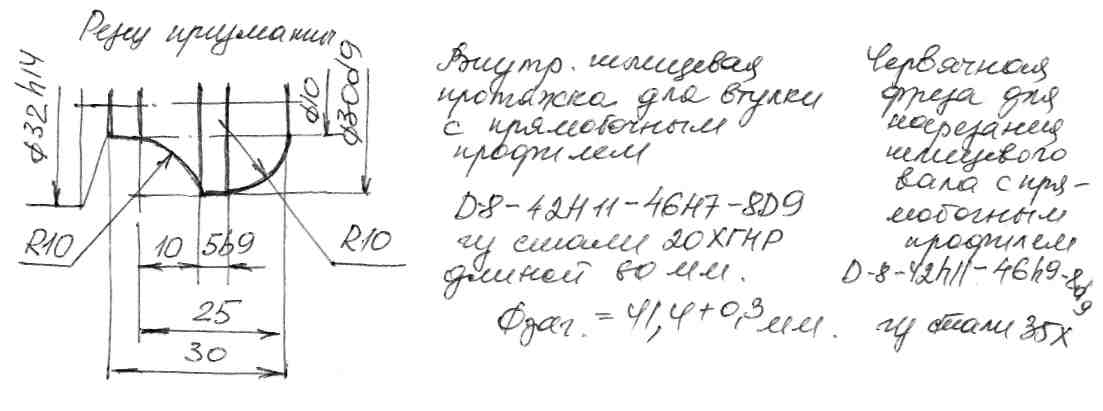 Резец призматич
ф32h14
ф10
ф30d9
R10
10
5b9
R10
25
30
Внутр. шлицевая
протяжка для втулки
с прямобочным
профилем
D-8-42H11-46H7-8D9
из стали 20ХГНР
длиной 60 мм.
Фзаг. = 41,4+0,3 мм.
Червячная
фреза для
нарезания
шлицевого
вала с пря-
мобочным
профилем
D-8-42h11-46h9-8d9
из стали 35Х